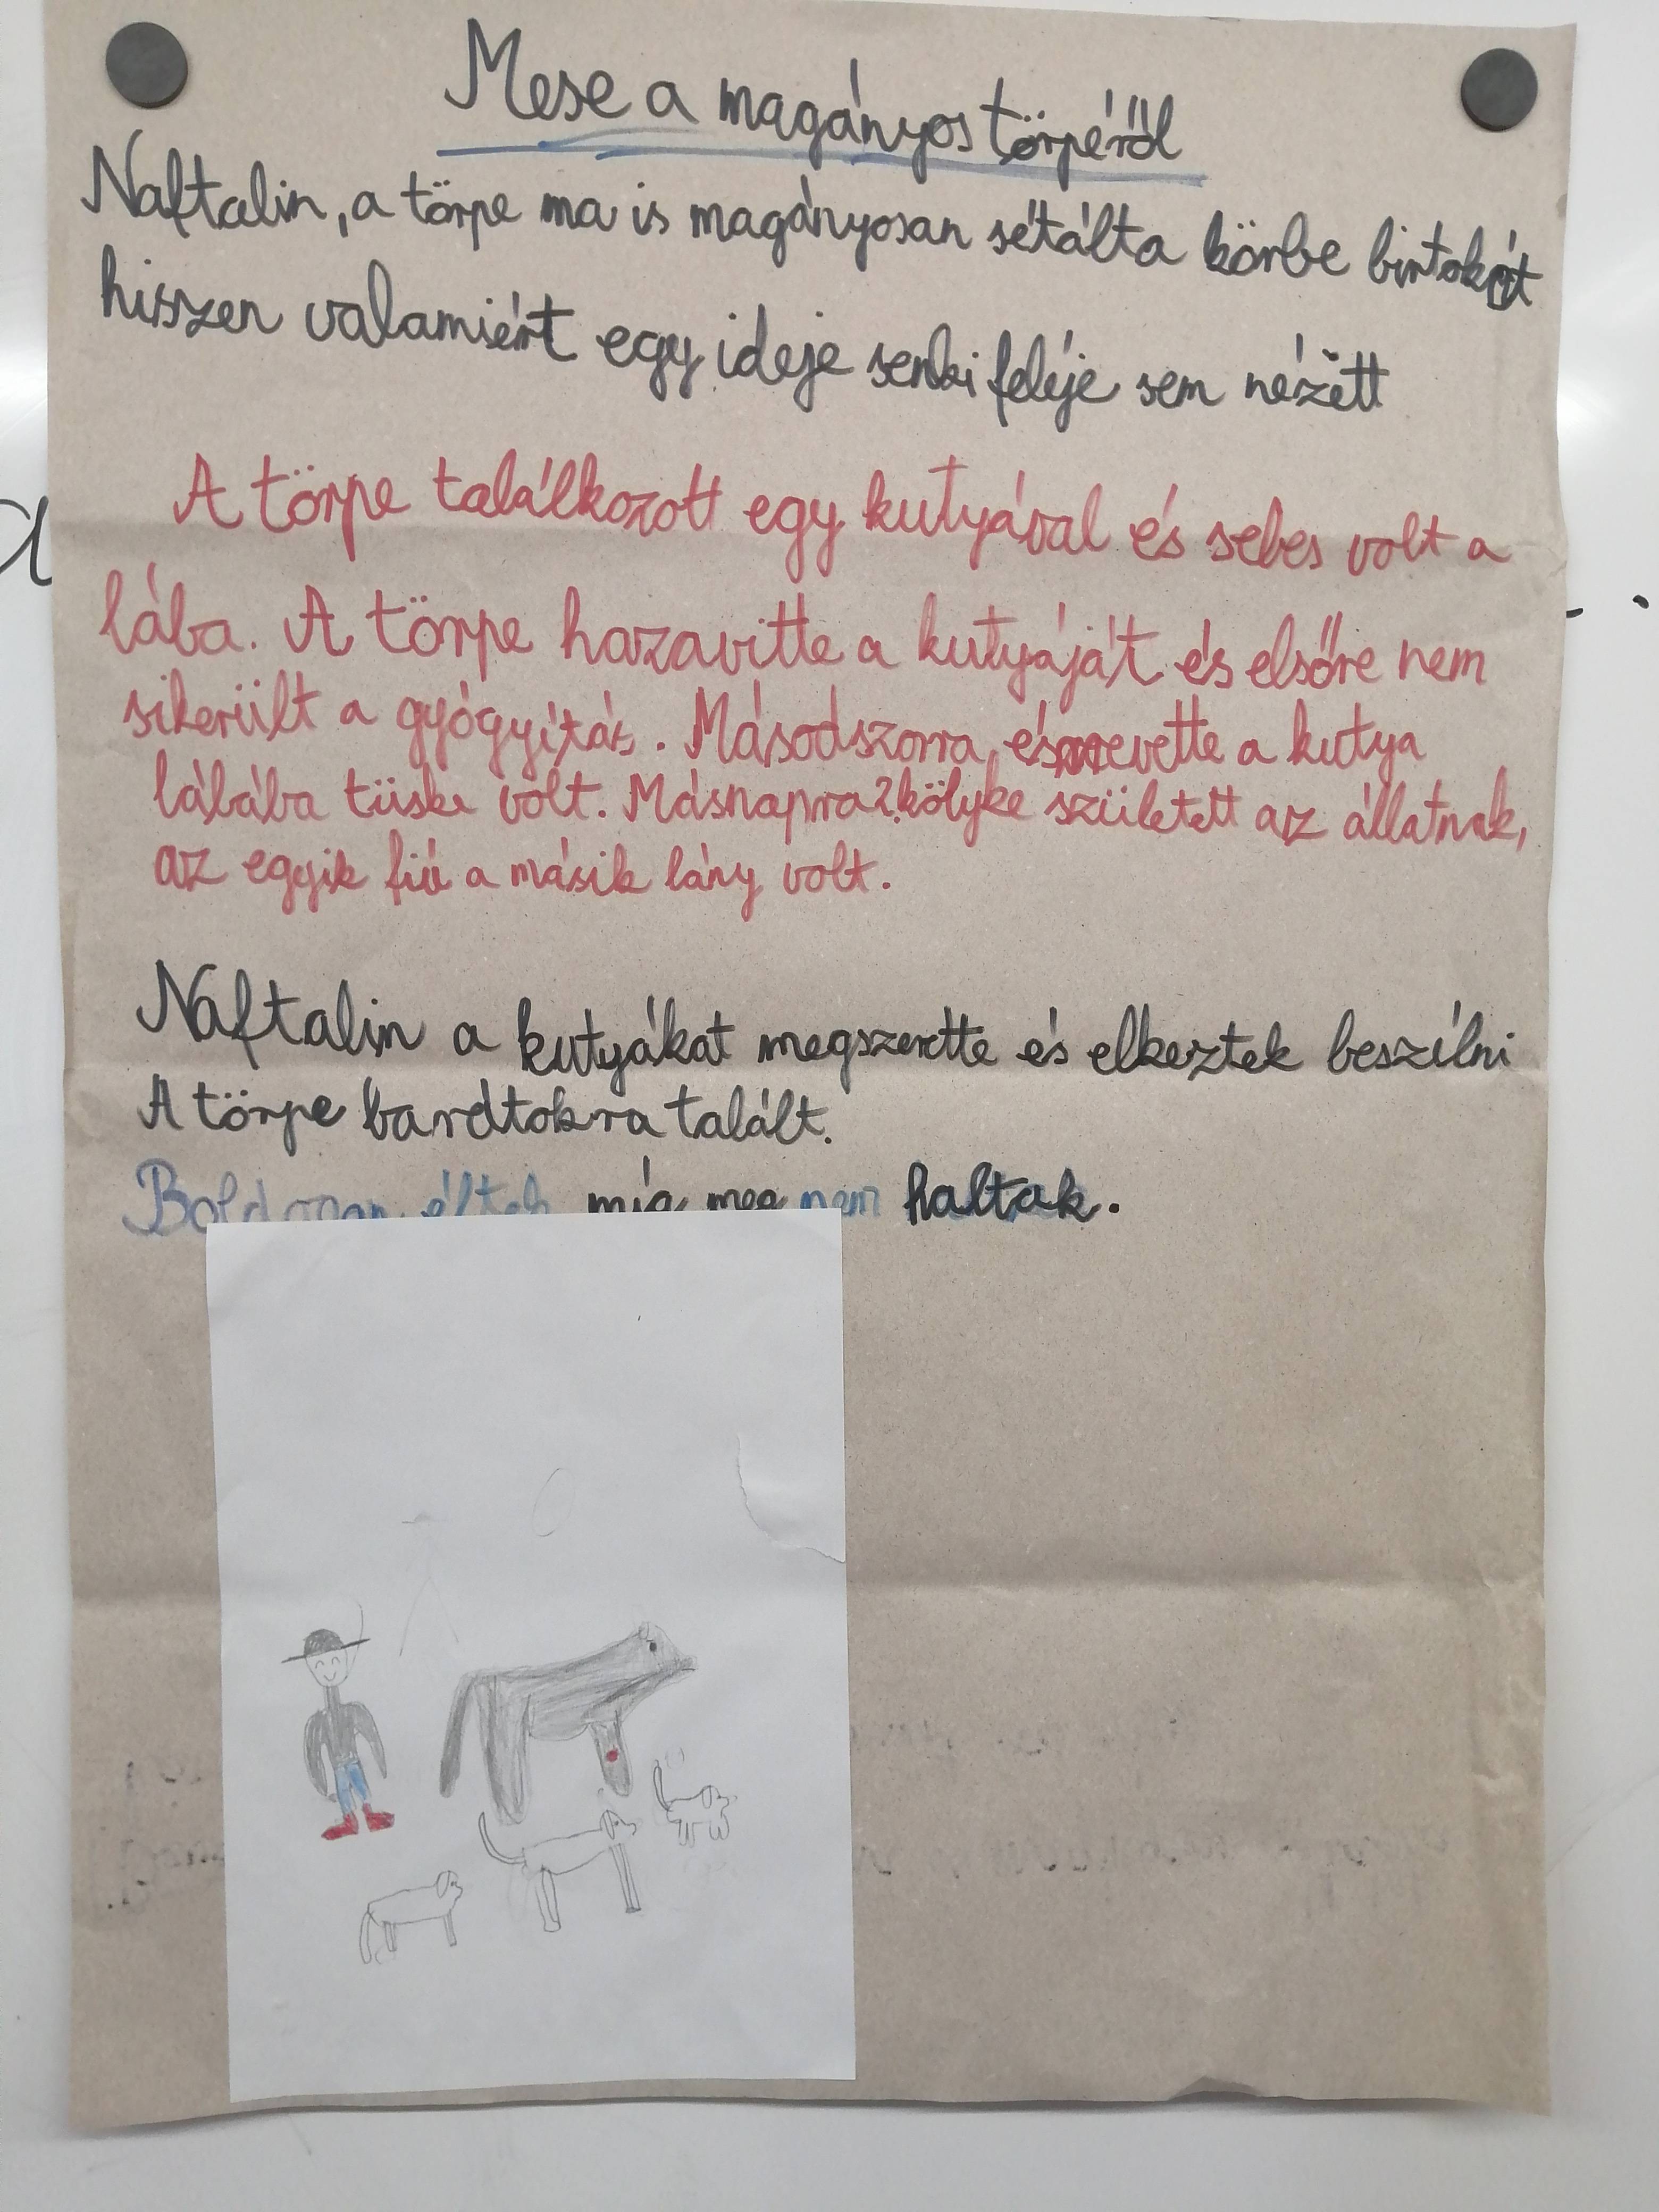 Mese a magányos törpéről
Naftalin, a törpe ma is magányosan sétálta körbe birtokát
hisszen valamiért egy ideje senki feléje sem nézett
A törpe találkozott egy kutyával és sebes volt a
lába. A törpe hazavitte a kutyáját és elsőre nem
sikerült a gyógyítás. Másodszorra észrevette a kutya
lábába tüske volt. Másnapra 2 kölyke született az állatnak,
az egyik fiú a másik lány volt.
Naftalin a kutyákat megszerette és elkeztek beszélni
A törpe bardtokra talált.
Boldogan éltek míg meg nem haltak.